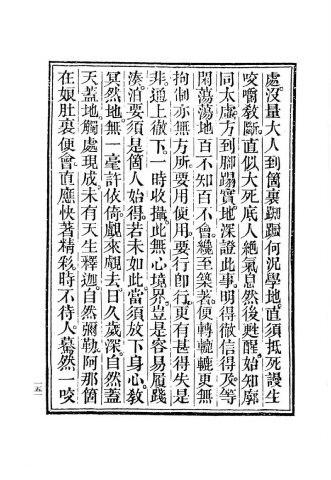 處。沒量大人到箇裏踟躕。何況學地。直須抵死謾生
咬嚼教斷。直似大死底人絕氣息然後甦醒。始知廓
同太虛。方到腳蹋實地。深證此事。明得徹信得及。等
閑蕩蕩地百不知百不會。纔至築著。便轉轆轆。更無
拘制。亦無方所。要用便用。要行即行。更有甚得失是
非。通上徹下。一時收攝。此無心境界。豈是容易履踐
湊泊。要須是箇人始得。若未如此。當須放下身心。教
冥然地無一毫許依倚。覷來覷去。日久歲深。自然蓋
天蓋地。觸處現成。未有天生釋迦。自然彌勒。阿那箇
在娘肚裏便會。直應快著精彩。時不待人。驀然一咬
一五